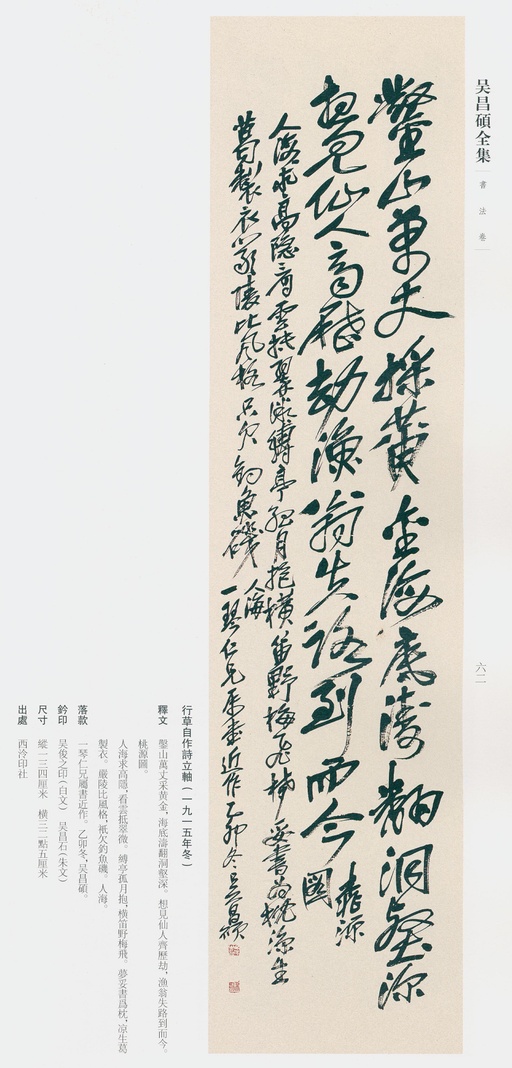 吴昌碩全集
書法卷
六二
鑿山萬丈採黄金海底濤翻洞壑深
想見仙人齊歷劫漁翁失路到而今
桃源
圖
人海求高隱看雲抵翠微縛亭孤月抱橫笛野梅飛夢妥書為枕涼生
葛製衣嚴陵比風格只欠釣魚磯
人海
一琴仁兄屬書近作乙卯冬吴昌碩
行草自作詩立軸(一九一五年冬)
釋文 鑿山萬丈采黄金，海底濤翻洞壑深。想見仙人齊歷劫，漁翁失路到而今。
桃源圖。
人海求高隱，看雲抵翠微。縛亭孤月抱，橫笛野梅飛。夢妥書爲枕，凉生葛
製衣。嚴陵比風格，祇欠釣魚磯。人海。
落款 一琴仁兄屬書近作。乙卯冬，吴昌碩。
鈐印 吴俊之印(白文) 吴昌石(朱文)
尺寸 縱一三四厘米 橫三二點五厘米
出處 西泠印社